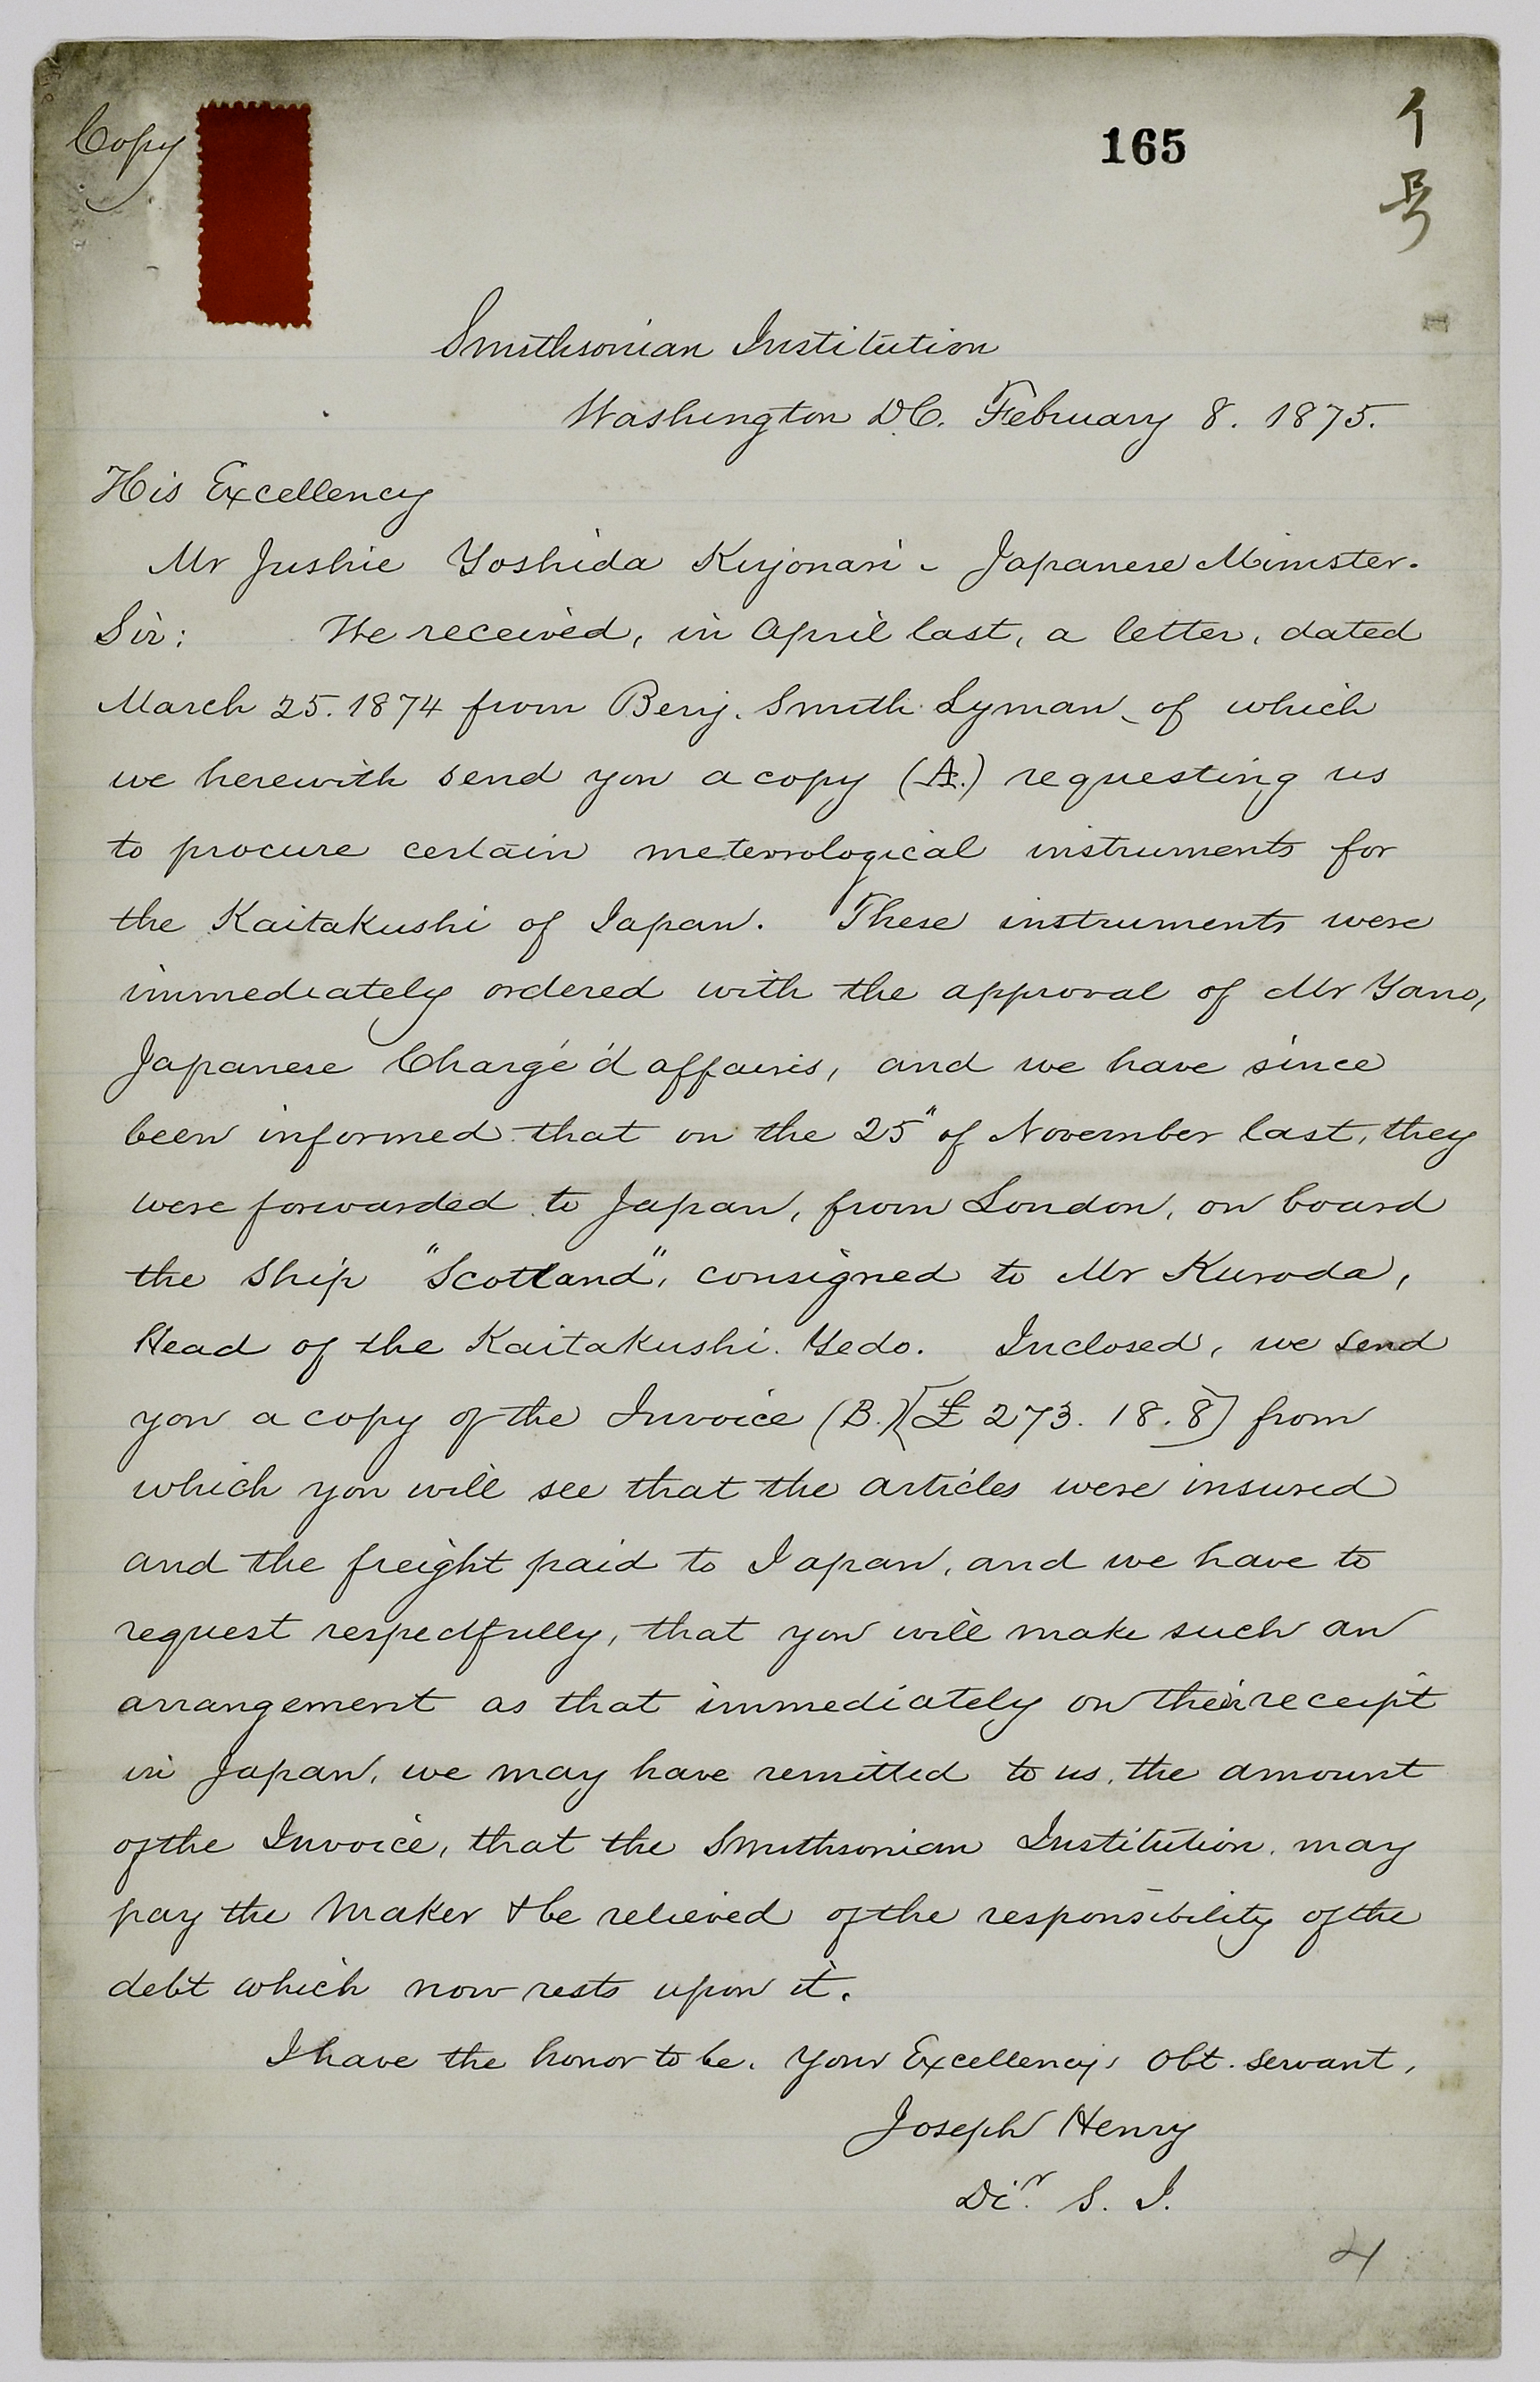 Copy
165
イ号
Smithsonian Institution
Washington D.C. February 8. 1875.
His Excellency
Mr Jushie Yoshida Kiyonari - Japanese Minister.
Sir: We received, in April last, a letter, dated
March 25. 1874 from Benj. Smith Lyman, of which
we herewith send you a copy (A.) requesting us
to procure certain meteorological instruments for
the Kaitakushi of Japan. These instruments were
immediately ordered with the approval of Mr Yano,
Japanese Chargé d'affaires, and we have since
been informed that on the 25" of November last, they
were forwarded to Japan, from London, on board
the Ship "Scotland", consigned to Mr Kuroda,
Head of the Kaitakushi. Yedo. Inclosed, we send
you a copy of the Invoice (B.) [£ 273. 18. 8] from
which you will see that the articles were insured
and the freight paid to Japan, and we have to
request respectfully, that you will make such an
arrangement as that immediately on their receipt
in Japan, we may have remitted to us, the amount
of the Invoice, that the Smithsonian Institution may
pay the Maker & be relieved of the responsibility of the
debt which now rests upon it.
I have the honor to be. Your Excellency's Obt. servant,
Joseph Henry
Dir. S. I.
4